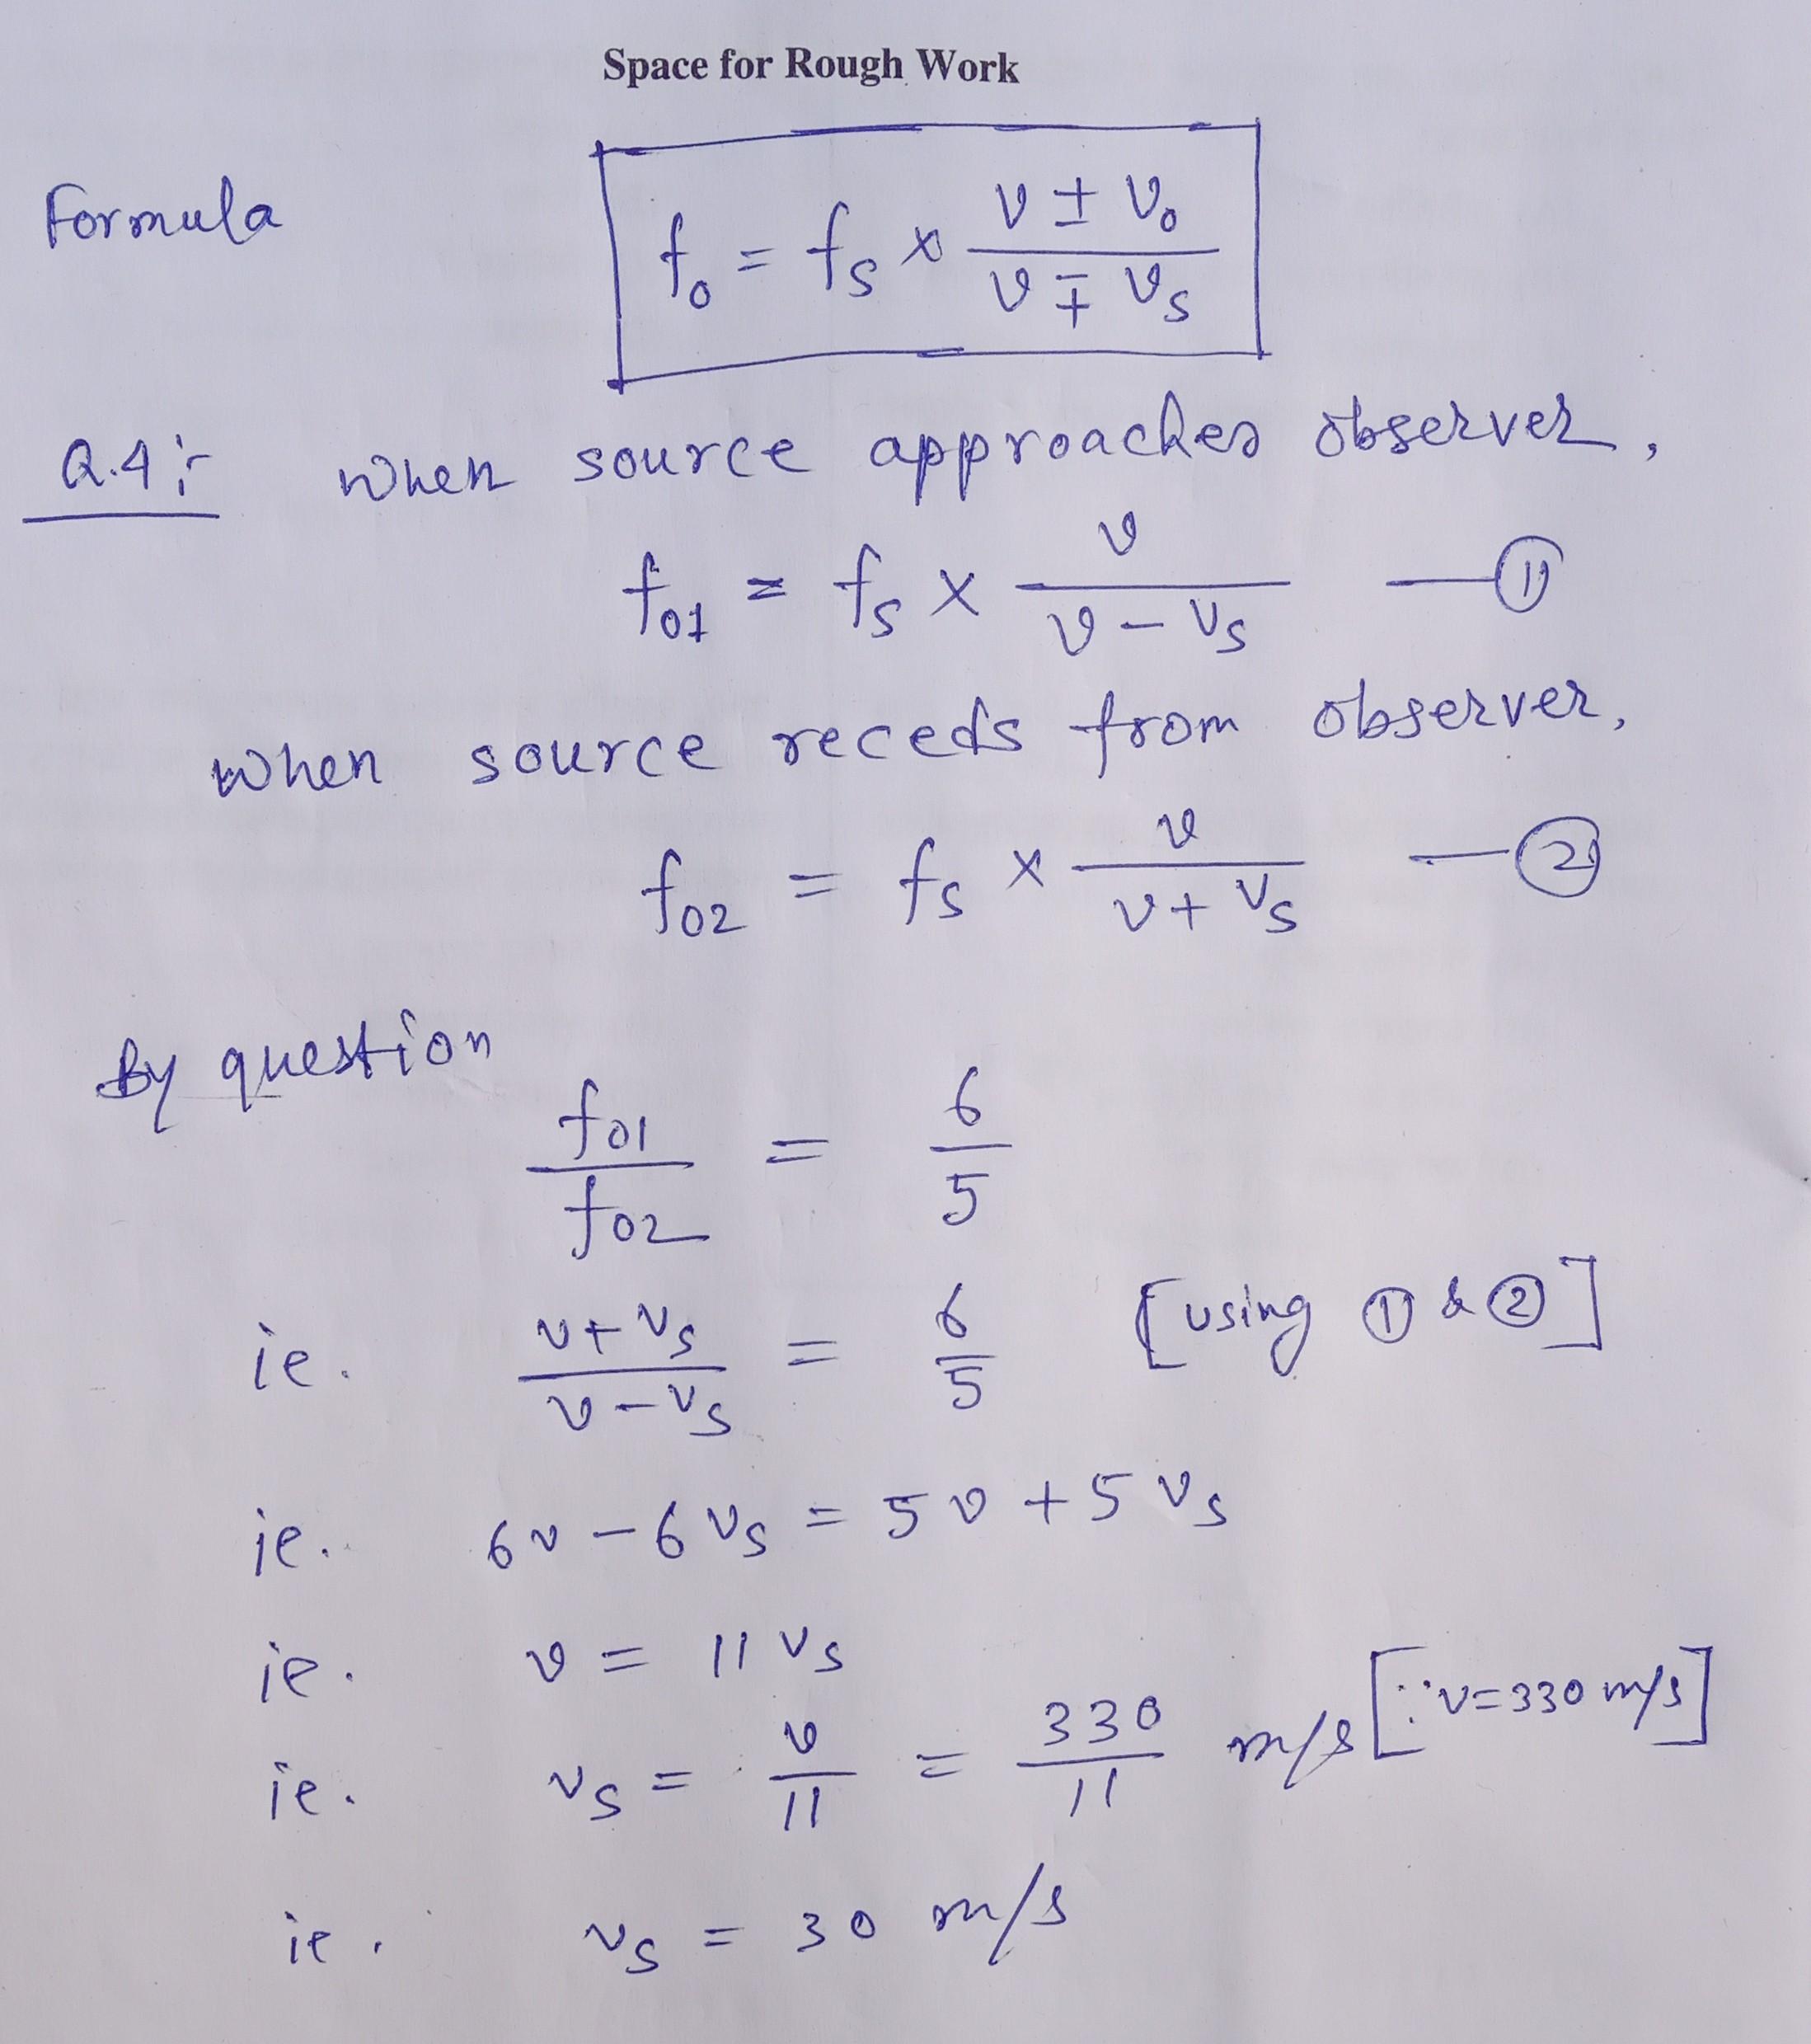 Space for Rough Work
Formula f₀ = fₛ × (v ± v₀)/(v ∓ vₛ)
Q.4:- When source approaches observer,
f₀₁ = fₛ × v/(v − vₛ) —①
When source receds from observer,
f₀₂ = fₛ × v/(v + vₛ) —②
By question
f₀₁/f₀₂ = 6/5
ie. (v + vₛ)/(v − vₛ) = 6/5 [using ① & ②]
ie. 6v − 6vₛ = 5v + 5vₛ
ie. v = 11vₛ
ie. vₛ = v/11 = 330/11 m/s [∵ v = 330 m/s]
ie. vₛ = 30 m/s